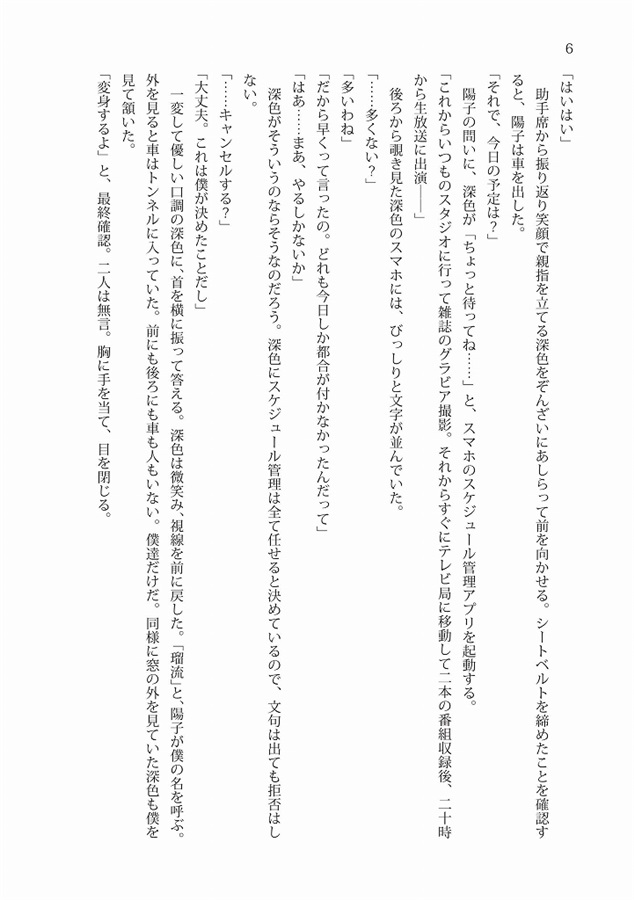 6
「はいはい」
　助手席から振り返り笑顔で親指を立てる深色をぞんざいにあしらって前を向かせる。シートベルトを締めたことを確認す
ると、陽子は車を出した。
「それで、今日の予定は？」
　陽子の問いに、深色が「ちょっと待ってね……」と、スマホのスケジュール管理アプリを起動する。
「これからいつものスタジオに行って雑誌のグラビア撮影。それからすぐにテレビ局に移動して二本の番組収録後、二十時
から生放送に出演――」
　後ろから覗き見た深色のスマホには、びっしりと文字が並んでいた。
「……多くない？」
「多いわね」
「だから早くって言ったの。どれも今日しか都合が付かなかったんだって」
「はあ……まあ、やるしかないか」
　深色がそういうのならそうなのだろう。深色にスケジュール管理は全て任せると決めているので、文句は出ても拒否はし
ない。
「……キャンセルする？」
「大丈夫。これは僕が決めたことだし」
　一変して優しい口調の深色に、首を横に振って答える。深色は微笑み、視線を前に戻した。「瑠流」と、陽子が僕の名を呼ぶ。
外を見ると車はトンネルに入っていた。前にも後ろにも車も人もいない。僕達だけだ。同様に窓の外を見ていた深色も僕を
見て頷いた。
「変身するよ」と、最終確認。二人は無言。胸に手を当て、目を閉じる。